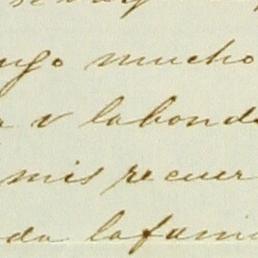 ngo mucho
a v labond
mis recuer
da lafami